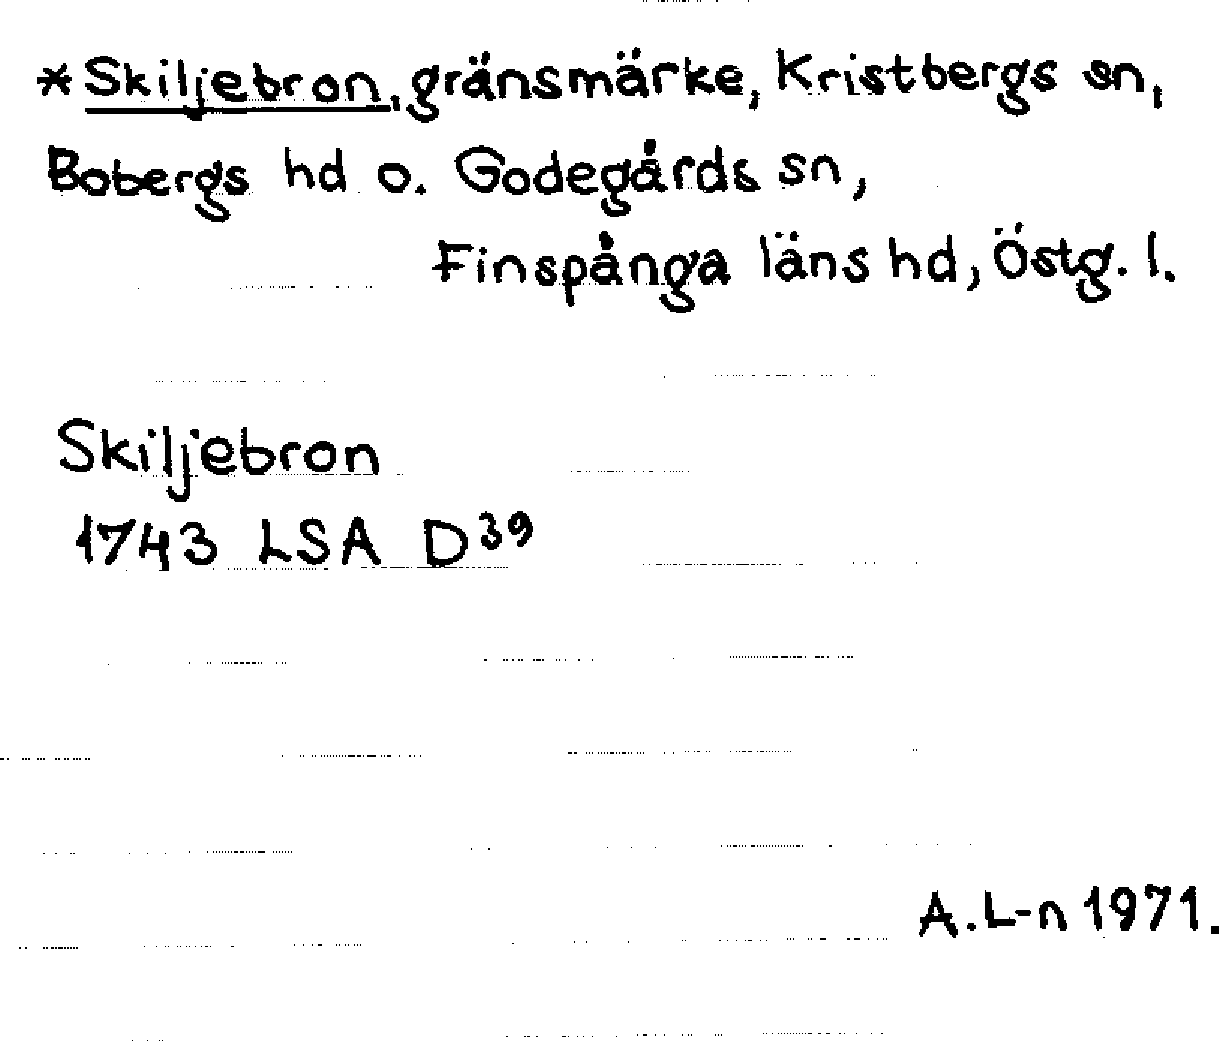 *Skiljebron, gränsmärke, Kristbergs sn,
Bobergs hd o. Godegårds sn,
Finspånga läns hd, Östg. l.
Skiljebron
1743 LSA D³⁹
A.L-n 1971.